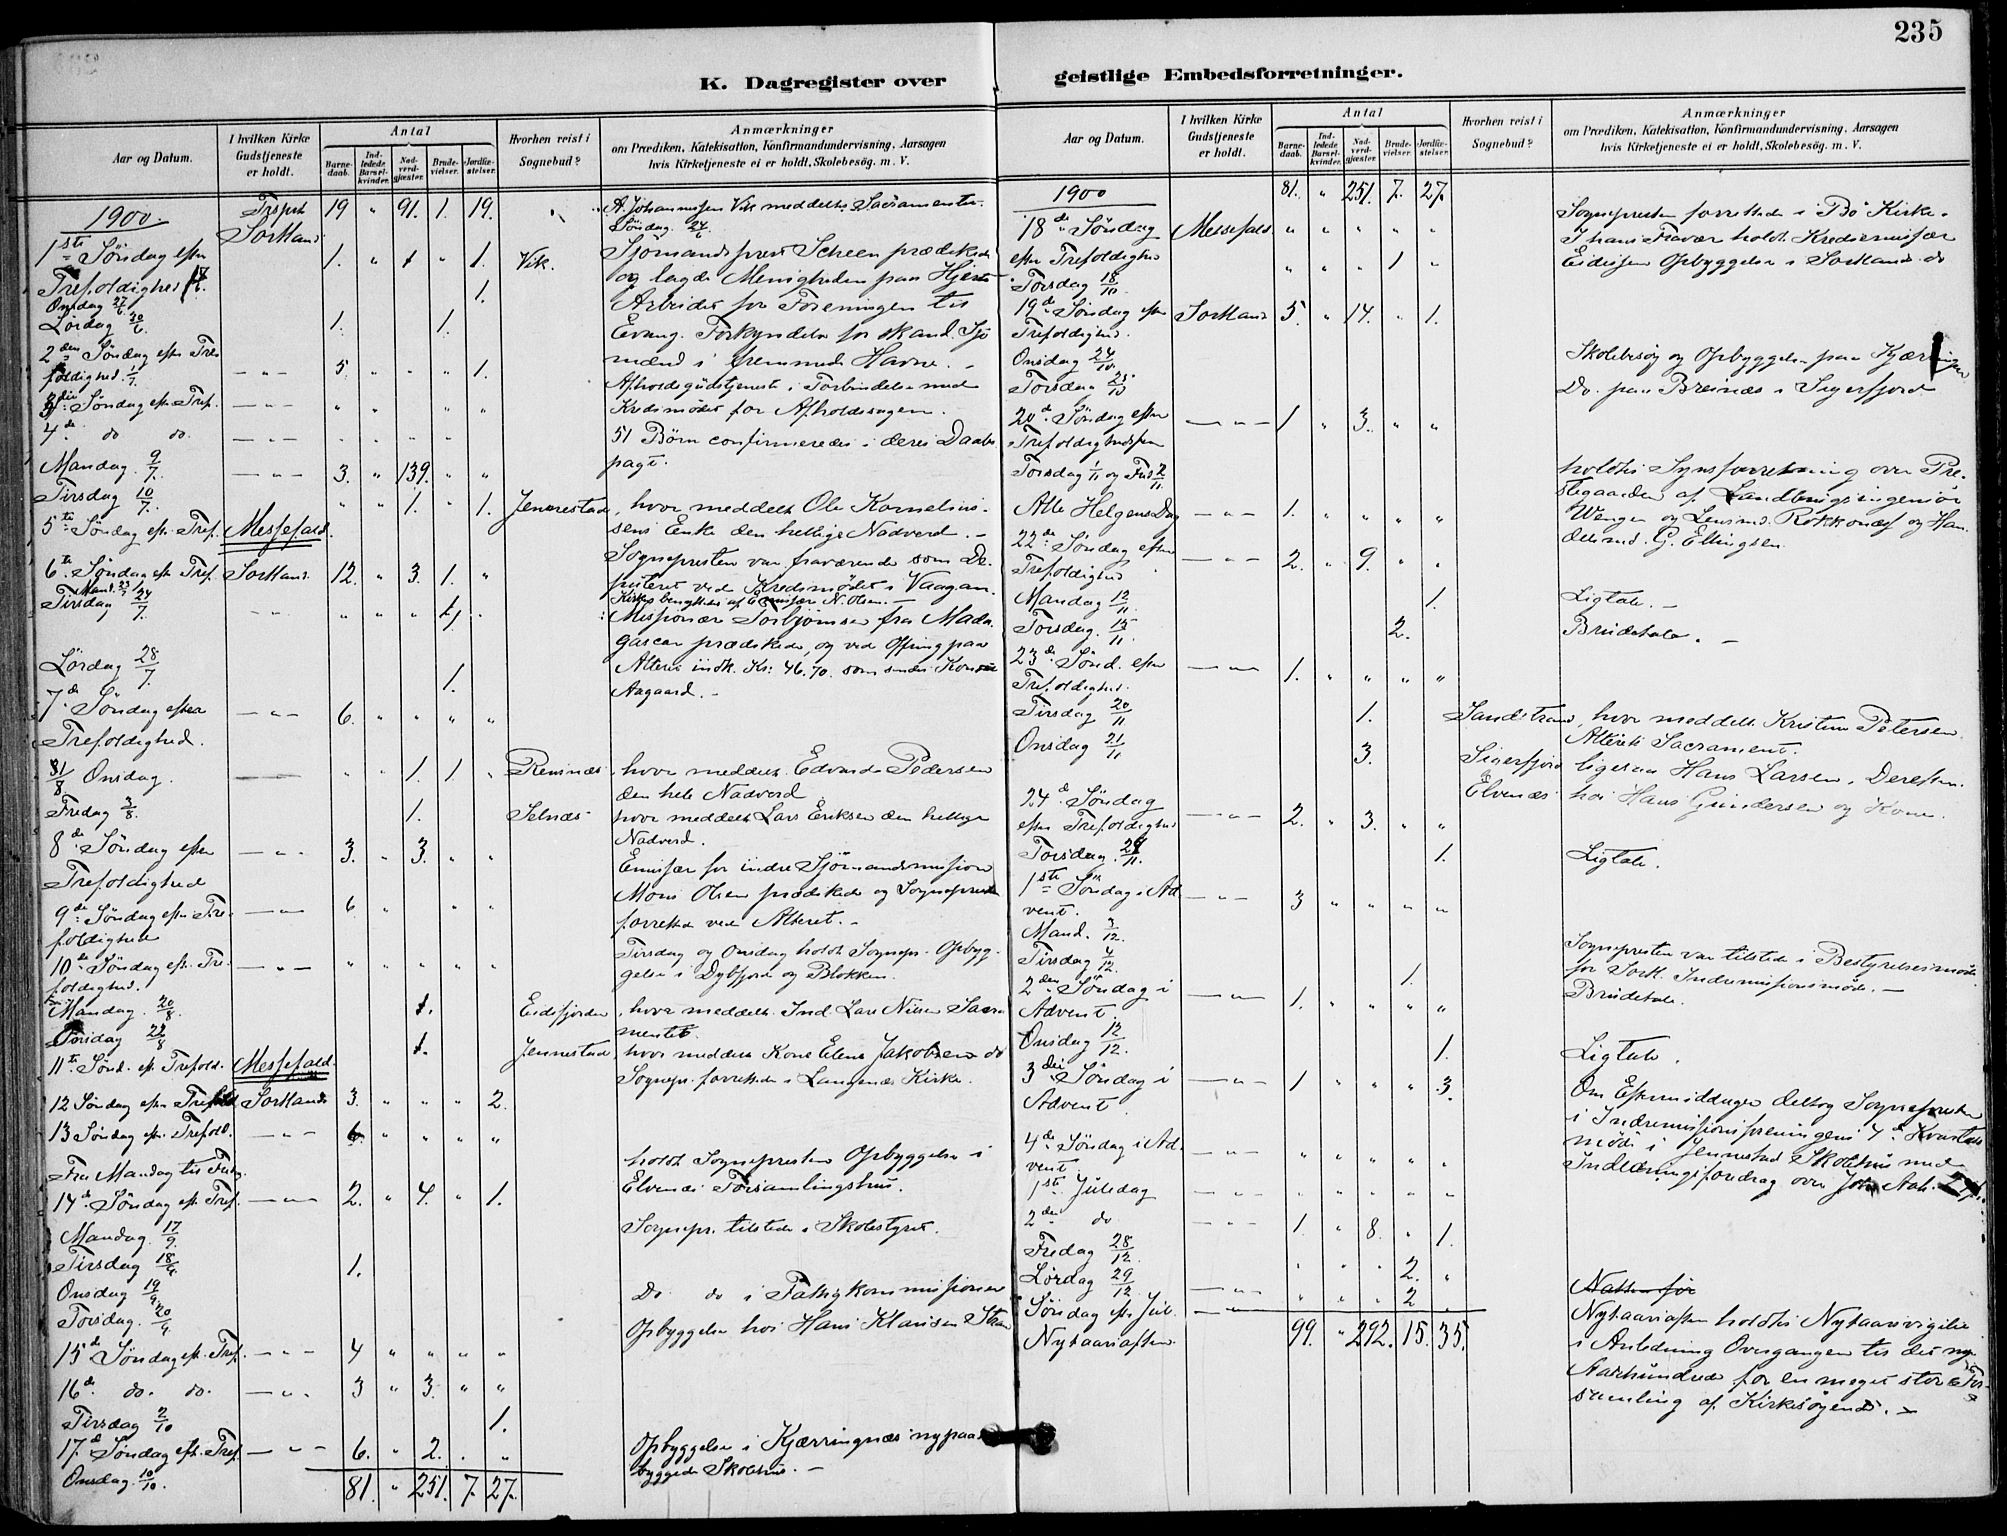 235
K. Dagregister over
geistlige Embedsforretninger.
Aar og Datum.
I hvilken Kirke Gudstjeneste er holdt.
Antal
Barne-daab.
Ind-ledede Barsel-kvinder.
Nad-verd-gjæster.
Brude-vielser.
Jordfæ-stelser.
Hvorhen reist i Sognebud?
Anmærkninger
om Prædiken, Katekisation, Konfirmandundervisning, Aarsagen
hvis Kirketjeneste ei er holdt, Skolebesög. m. V.
1900. Trspt 19 " 91. 1. 19. A. Johannessen Vik meddeltes Sacramentet.
Sortland Söndag 24/6.
1ste Söndag efter 1. " 1 " 1. Vik. Sjömandsprest Scheen prædikede
Trefoldighed og lagde Menigheden paa Hjerte
Onsdag 27/6 1. Arbeidet for Foreningen til
Lördag 30/6. 1. 1. Evang. Forkyndelse for skand. Sjö
2den Söndag efter Tre mænd i fremmede Havne. -
foldighed. 1/7. - " - 5. " " " 1. Afholdsgudstjeneste i Forbindelse med
3die Söndag eft. Tref. - " - " " " " " Kredsmödet for Afholdssagen.
4de do do. - " - " " " " " 51 Börn confirmeredes i deres Daabs
Mandag 9/7. - " - 3. " 139. " " pagt.
Tirsdag 10/7. " " 1. " 1. Jennestad, hvor meddelt Ole Kornelius-
5te Söndag eft. Tref. Messefald. sens Enke den hellige Nadverd. -
6te Söndag eft. Tref. Sortland. 12. " 3. 1. " Sognepresten var fraværende som De-
Mand. 23/7 puteret ved Kredsmödet i Vaagan.
Tirsdag 24/7. Kirken benyttedes af Emissær N. Olsen. -
Missionær Torbjörnsen fra Mada-
gascar prædikede, og ved Ofring paa
Lördag 28/7. 1. Alteret indk. Kr. 46.70. som sendes Konsul
7de Söndag efter - " - 6. " " " " Aagaard. -
Trefoldighed.
31/8 Onsdag. " " 1. 1. " Reinsnæs, hvor meddelt Edvard Pedersen
den hele Nadverd
Fredag 3/8. 1. Selnæs hvor meddelt Lars Eriksen den hellige
8de Söndag efter - " - 3. " 3. " " Nadverd.
Trefoldighed Emissær for indre Sjömandsmission
9de Söndag efter Tre- - " - 6 " " " Mons Olsen prædikede og Sognepresten
foldighed forrettede ved Alteret. -
10de Söndag eft. Tre- - " - " " " " " Tirsdag og Onsdag holdt Sognepr. Opbyg-
foldighed. gelse i Dybfjord og Blokken.
Mandag. 20/8. 1. Eidsfjorden, hvor meddelt Ind. Lars Nilsen Sacra
mentet.
Tirsdag 1. Jennestad, hvor meddelt Kone Elene Jakobsen do
11te Sönd. eft. Trefold. Messefald. Sognepr. forrettede i Langenes Kirke.
12 Söndag efter Trefold Sortland 3. " " " 2.
13 Söndag eft. Trefold. - " - 6. " " " "
Fra Mandag til Fredag holdt Sognepresten Opbyggelse i
14de Söndag eft. Tref. - " - 2. " 4. " 1. Elvenæs Forsamlingshus.
Mandag. 17/9. Sognepr. tilstede i Skolestyret.
Tirsdag 18/9. 1.
Onsdag 19/9. Do do i Fattigkommissionen
Torsdag. 20/9. Opbyggelse hos Hans Klausen Strand
15de Söndag eft. Tref. - " - 4 " " " "
16de do. do. - " - 3 " 3. " "
Tirsdag 2/10 1.
17de Söndag eft. Tref. - " - 6. " 2. " " Opbyggelse i Kjærringnæs nypaa-
Onsdag. 10/10. byggede Skolehus. -
81. " 251. 7. 27.
Aar og Datum.
I hvilken Kirke Gudstjeneste er holdt.
Antal
Barne-daab.
Ind-ledede Barsel-kvinder.
Nad-verd-gjæster.
Brude-vielser.
Jordfæ-stelser.
Hvorhen reist i Sognebud?
Anmærkninger
om Prædiken, Katekisation, Konfirmandundervisning, Aarsagen
hvis Kirketjeneste ei er holdt, Skolebesög. m. V.
1900 81. " 251. 7. 27.
18de Söndag Messefald " " " " " Sognepresten forrettede i Bö Kirke.
efter Trefoldighed I hans Fravær holdt Kredsemissær
Torsdag 18/10. " " " 1 " Eidissen Opbyggelse i Sortlands do
19de Söndag efter Sortland 5. " 14. " 1.
Trefoldighed.
Onsdag 24/10. Skolebesög og Opbyggelse paa
Torsdag 25/10 Do. paa Breinæs i Sigerfjord
20de Söndag efter - " - 1 " 3. " "
Trefoldighedsfest
Torsdag 1/11 og Fred 2/11. holdtes Synsforretning over Pre-
Alle Helgens Dag - " - 1. " " " " stegaarden af Landbrugsingeniör
Wenger og Lensmd. Rokkones og Han
22de Söndag efter - " - 2. " 9. " " delsmd. G. Ellingsen.
Trefoldighed
Mandag 12/11. 1. Ligtale. -
Torsdag. 15/11. 2. Brudetale. -
23de Sönd. efter - " - 1. " " " "
Trefoldighed.
Tirsdag 20/11 1. Sandstrand, hvor meddelt Kristine Petersen
Alterets Sacrament.
Onsdag 21/11 3. Sigerfjord ligesaa Hans Larsen. Dereften
Elvenæs hos Hans Gundersen og Kone.
24de Söndag - " - 2. " 3. " "
efter Trefoldighed
Torsdag 1. Ligtale.
1ste Söndag i Ad- - " - 3 " " " "
vent.
Mand. 3/12.
Tirsdag 4/12. 1. Sognepresten var tilstede i Bestyrelsesmöde
for Sortl. Indremissionsmöde. -
2den Söndag i - " - 1. " " " " Brudetale.
Advent.
Onsdag 12/12. 1. Ligtale.
3die Söndag i - " - 1 " " " 3. Om Eftermiddagen deltog Sognepresten
Advent. i Indremissionsforeningens 4de Kvartals
4de Söndag i Ad- - " - " " " " " möde i Jennestad Skolehus med
vent. Indledningsforedrag over
1ste Juledag - " - " " " " "
2den do - " - 1. " 8. " 1.
Fredag 28/12 " " " 2. "
Lördag 29/12. - " - " " " 2 "
Söndag eft. Jul. - " -
Nytaarsaften 99. " 292. 15. 35. Nytaarsaften holdtes Nytaarsvigilie
i Anledning Overgangen til det nye
Aarhundrede for en meget stor For-
samling af Kirkesögende. -